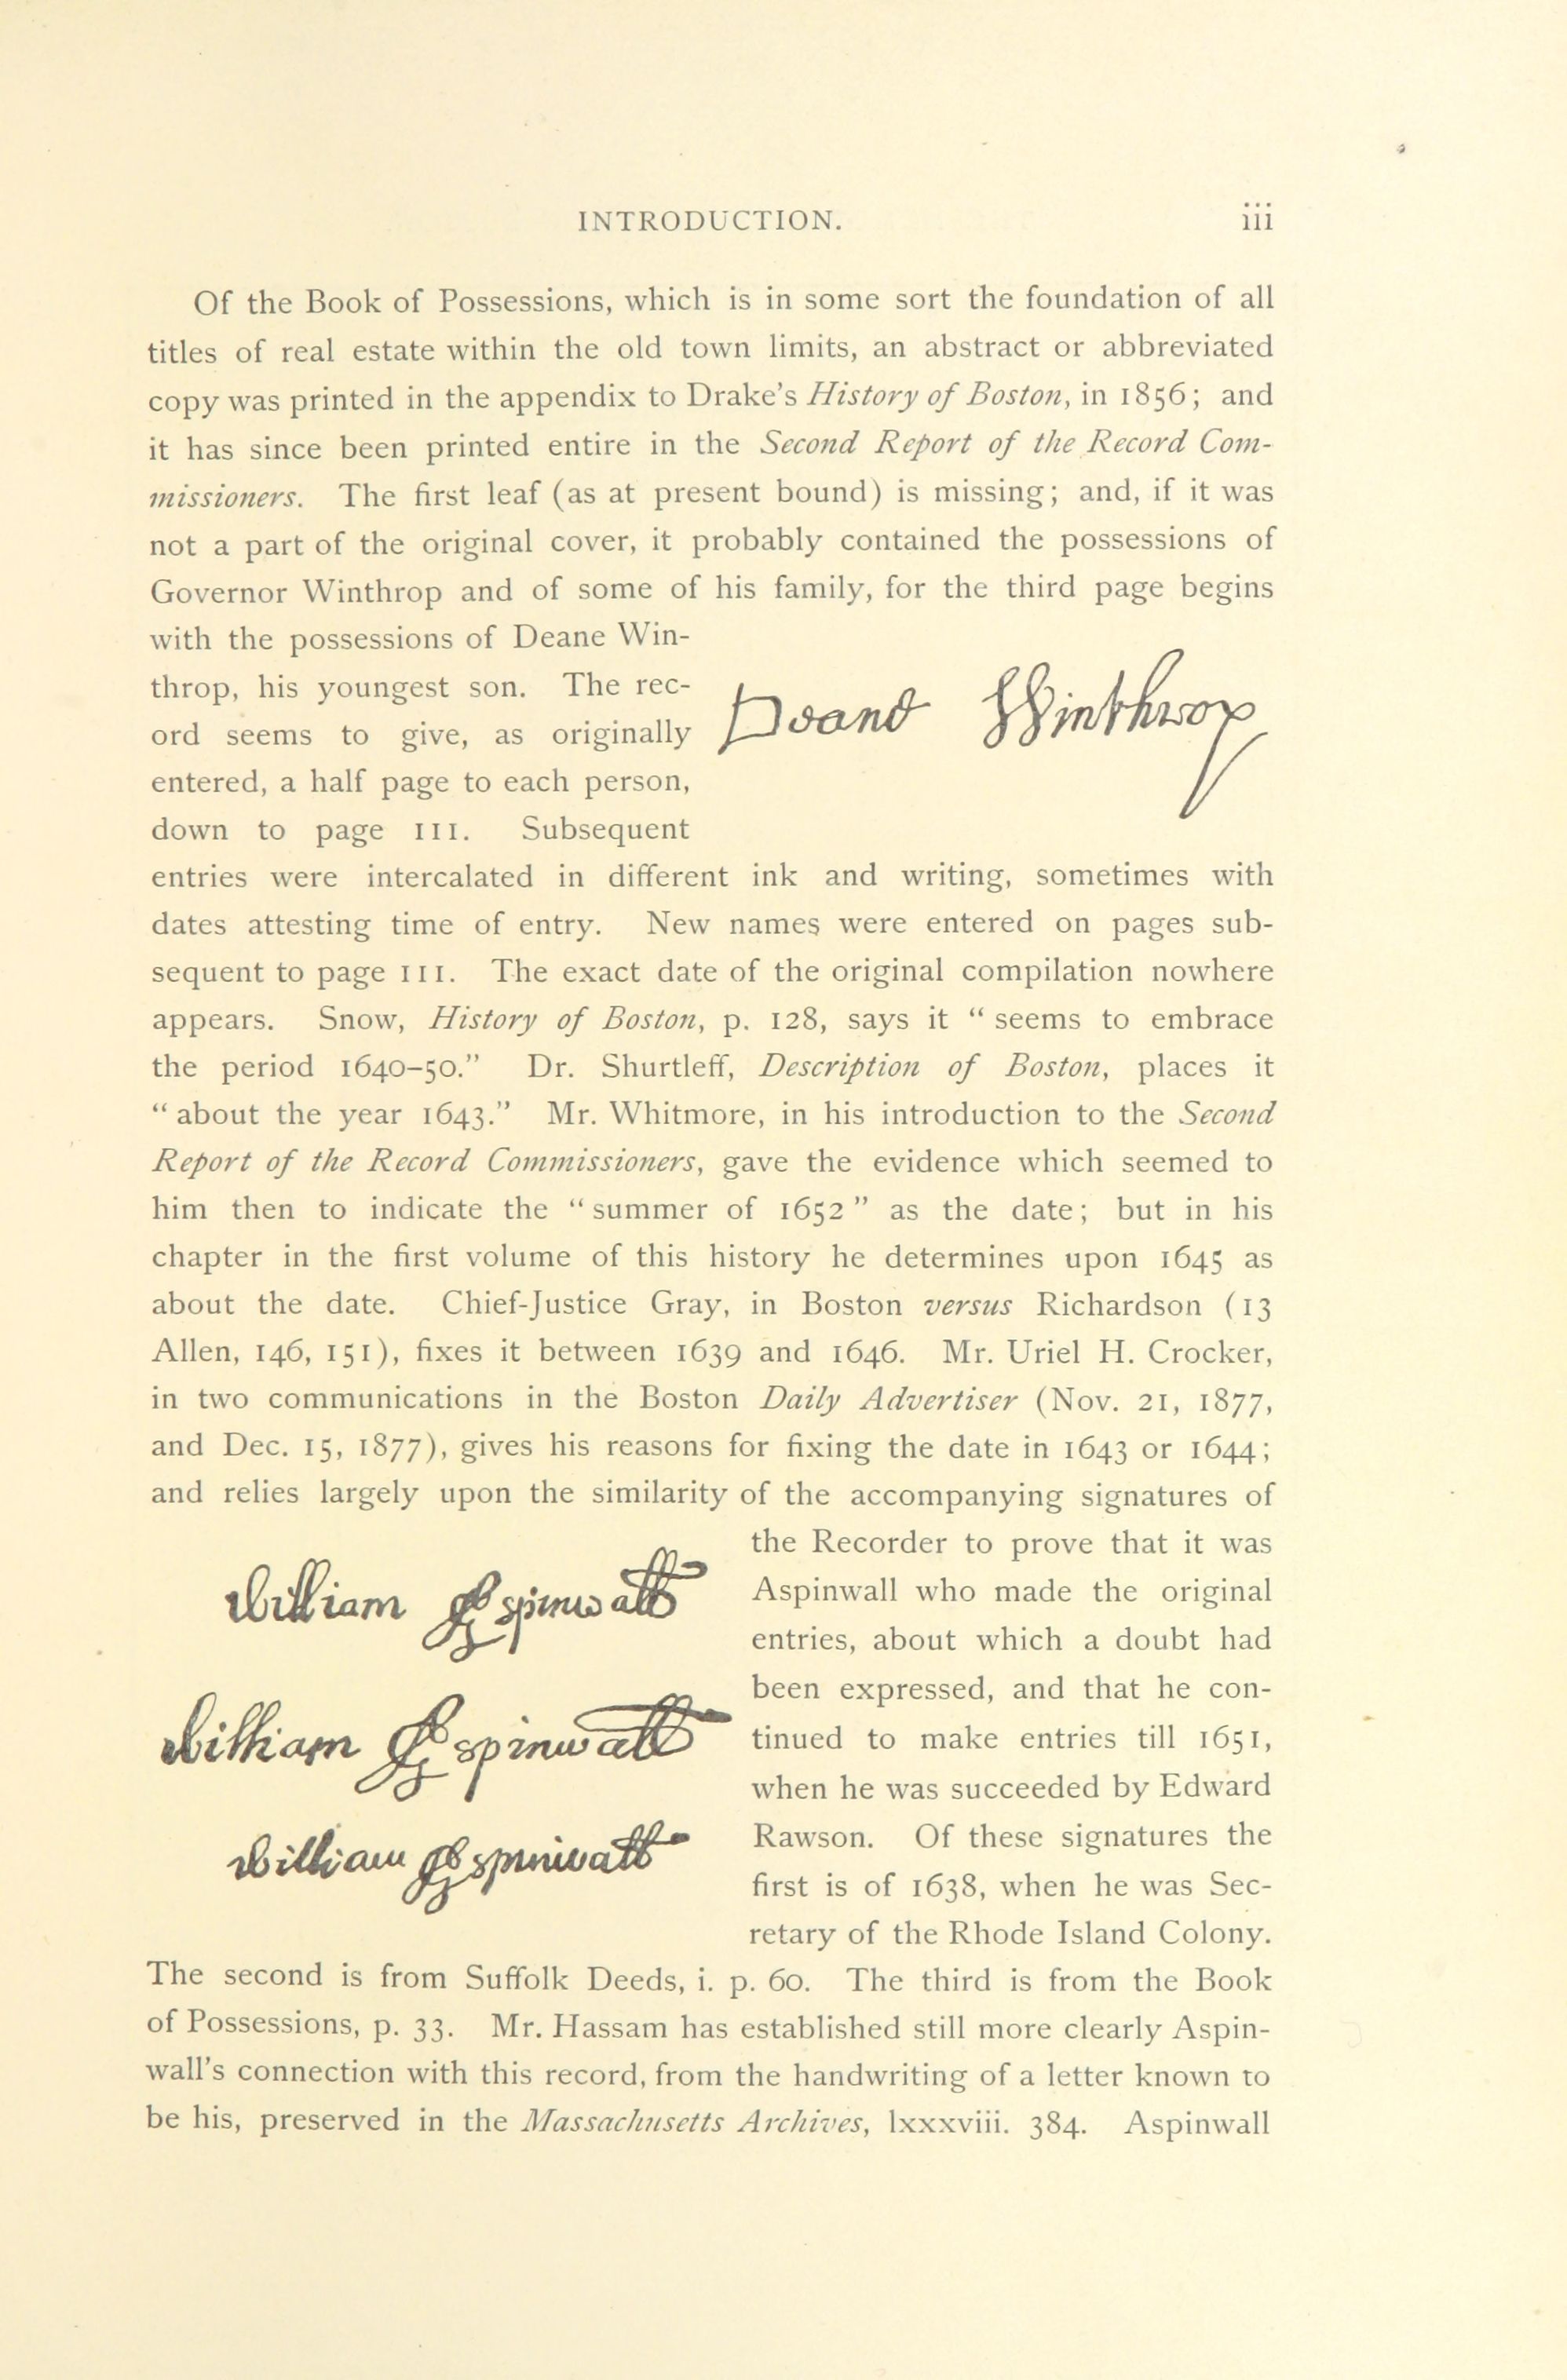 INTRODUCTION. iii
Of the Book of Possessions, which is in some sort the foundation of all
titles of real estate within the old town limits, an abstract or abbreviated
copy was printed in the appendix to Drake's History of Boston, in 1856; and
it has since been printed entire in the Second Report of the Record Com-
missioners. The first leaf (as at present bound) is missing; and, if it was
not a part of the original cover, it probably contained the possessions of
Governor Winthrop and of some of his family, for the third page begins
with the possessions of Deane Win-
throp, his youngest son. The rec-
ord seems to give, as originally
entered, a half page to each person,
down to page 111. Subsequent
Deane Winthrop
entries were intercalated in different ink and writing, sometimes with
dates attesting time of entry. New names were entered on pages sub-
sequent to page 111. The exact date of the original compilation nowhere
appears. Snow, History of Boston, p. 128, says it “seems to embrace
the period 1640–50.” Dr. Shurtleff, Description of Boston, places it
“about the year 1643.” Mr. Whitmore, in his introduction to the Second
Report of the Record Commissioners, gave the evidence which seemed to
him then to indicate the “summer of 1652” as the date; but in his
chapter in the first volume of this history he determines upon 1645 as
about the date. Chief-Justice Gray, in Boston versus Richardson (13
Allen, 146, 151), fixes it between 1639 and 1646. Mr. Uriel H. Crocker,
in two communications in the Boston Daily Advertiser (Nov. 21, 1877,
and Dec. 15, 1877), gives his reasons for fixing the date in 1643 or 1644;
and relies largely upon the similarity of the accompanying signatures of
William Aspinwall
William Aspinwall
William Aspinwall
the Recorder to prove that it was
Aspinwall who made the original
entries, about which a doubt had
been expressed, and that he con-
tinued to make entries till 1651,
when he was succeeded by Edward
Rawson. Of these signatures the
first is of 1638, when he was Sec-
retary of the Rhode Island Colony.
The second is from Suffolk Deeds, i. p. 60. The third is from the Book
of Possessions, p. 33. Mr. Hassam has established still more clearly Aspin-
wall's connection with this record, from the handwriting of a letter known to
be his, preserved in the Massachusetts Archives, lxxxviii. 384. Aspinwall